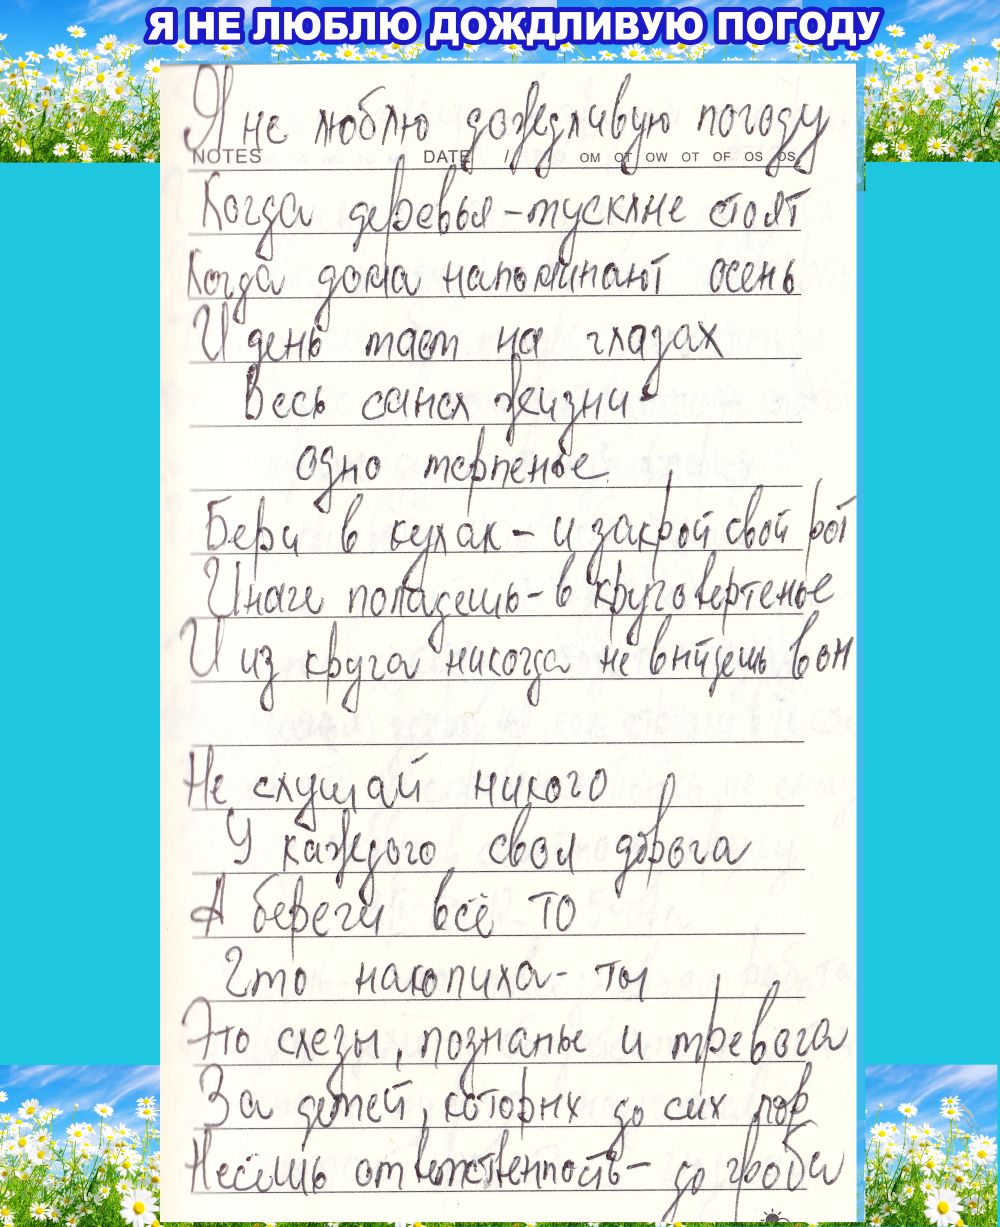 Я НЕ ЛЮБЛЮ ДОЖДЛИВУЮ ПОГОДУ
Я не люблю дождливую погоду
NOTES DATE / OM OT OW OT OF OS OS
Когда деревья - тусклые стоят
Когда дома напоминают осень
И день тает на глазах
Весь смысл жизни -
одно терпенье
Бери в кулак - и закрой свой рот
Иначе попадешь - в круговертенье
И из круга никогда не выйдешь вон
Не слушай никого
У каждого своя дорога
А береги всё то
Что накопила - ты
Это слезы, познанье и тревога
За детей, которых до сих пор
Несёшь ответственность - до гроба